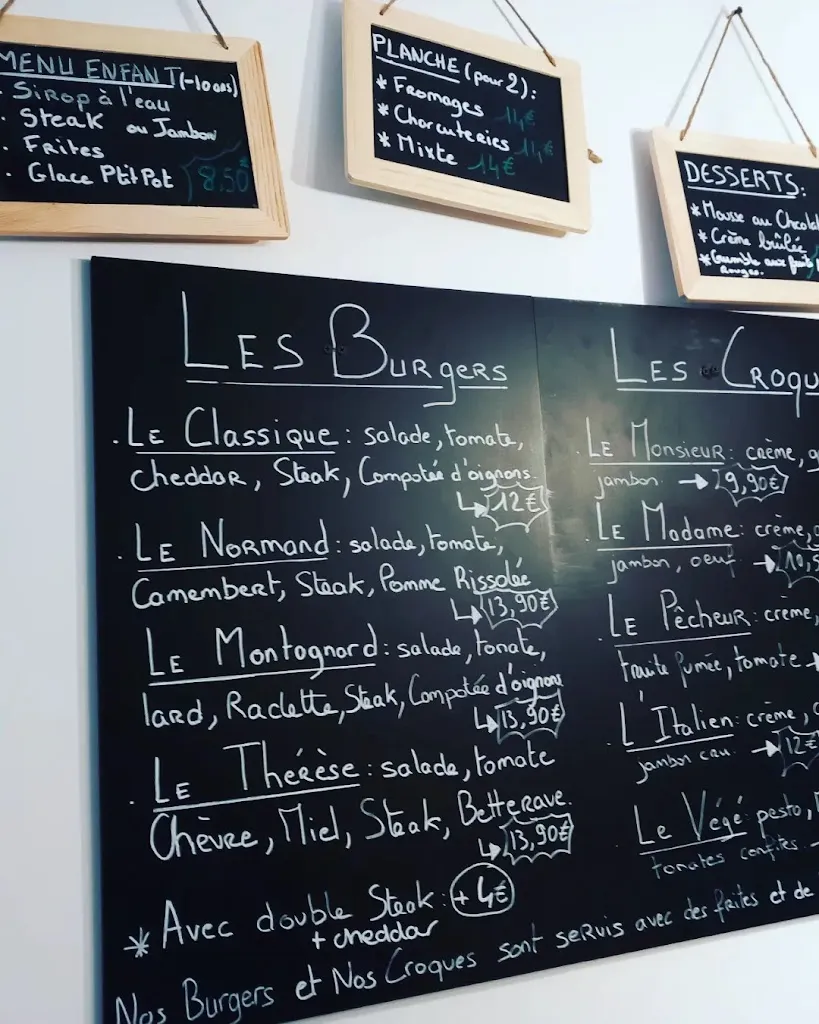 MENU ENFANT (-10 ans)
. Sirop à l'eau
. Steak ou Jambon
. Frites
. Glace P'tit Pot 8.50€
PLANCHE (pour 2) :
* Fromages 14€
* Charcuteries 14€
* Mixte 14€
DESSERTS :
* Mousse au Chocolat
* Crème brûlée
* Crumble aux fruits
rouges.
LES BURGERS
. LE Classique : salade, tomate,
cheddar, Steak, Compotée d'oignons.
↳ 12€
. LE NORMAND : salade, tomate,
Camembert, Steak, Pomme Rissolée
↳ 13,90€
. LE Montagnard : salade, tomate,
lard, Raclette, Steak, Compotée d'oignons
↳ 13,90€
. LE Thérèse : salade, tomate
Chèvre, Miel, Steak, Betterave.
↳ 13,90€
* Avec double Steak : + 4€
+ cheddar
LES CROQU
. LE MONSIEUR : crème,
jambon → 9,90€
. LE MADAME : crème,
jambon, oeuf → 10,5
. LE PÊCHEUR : crème,
truite fumée, tomate →
. L'Italien : crème,
jambon cru → 12€
. Le Végé : pesto,
tomates confites →
Nos Burgers et Nos Croques sont servis avec des frites et de